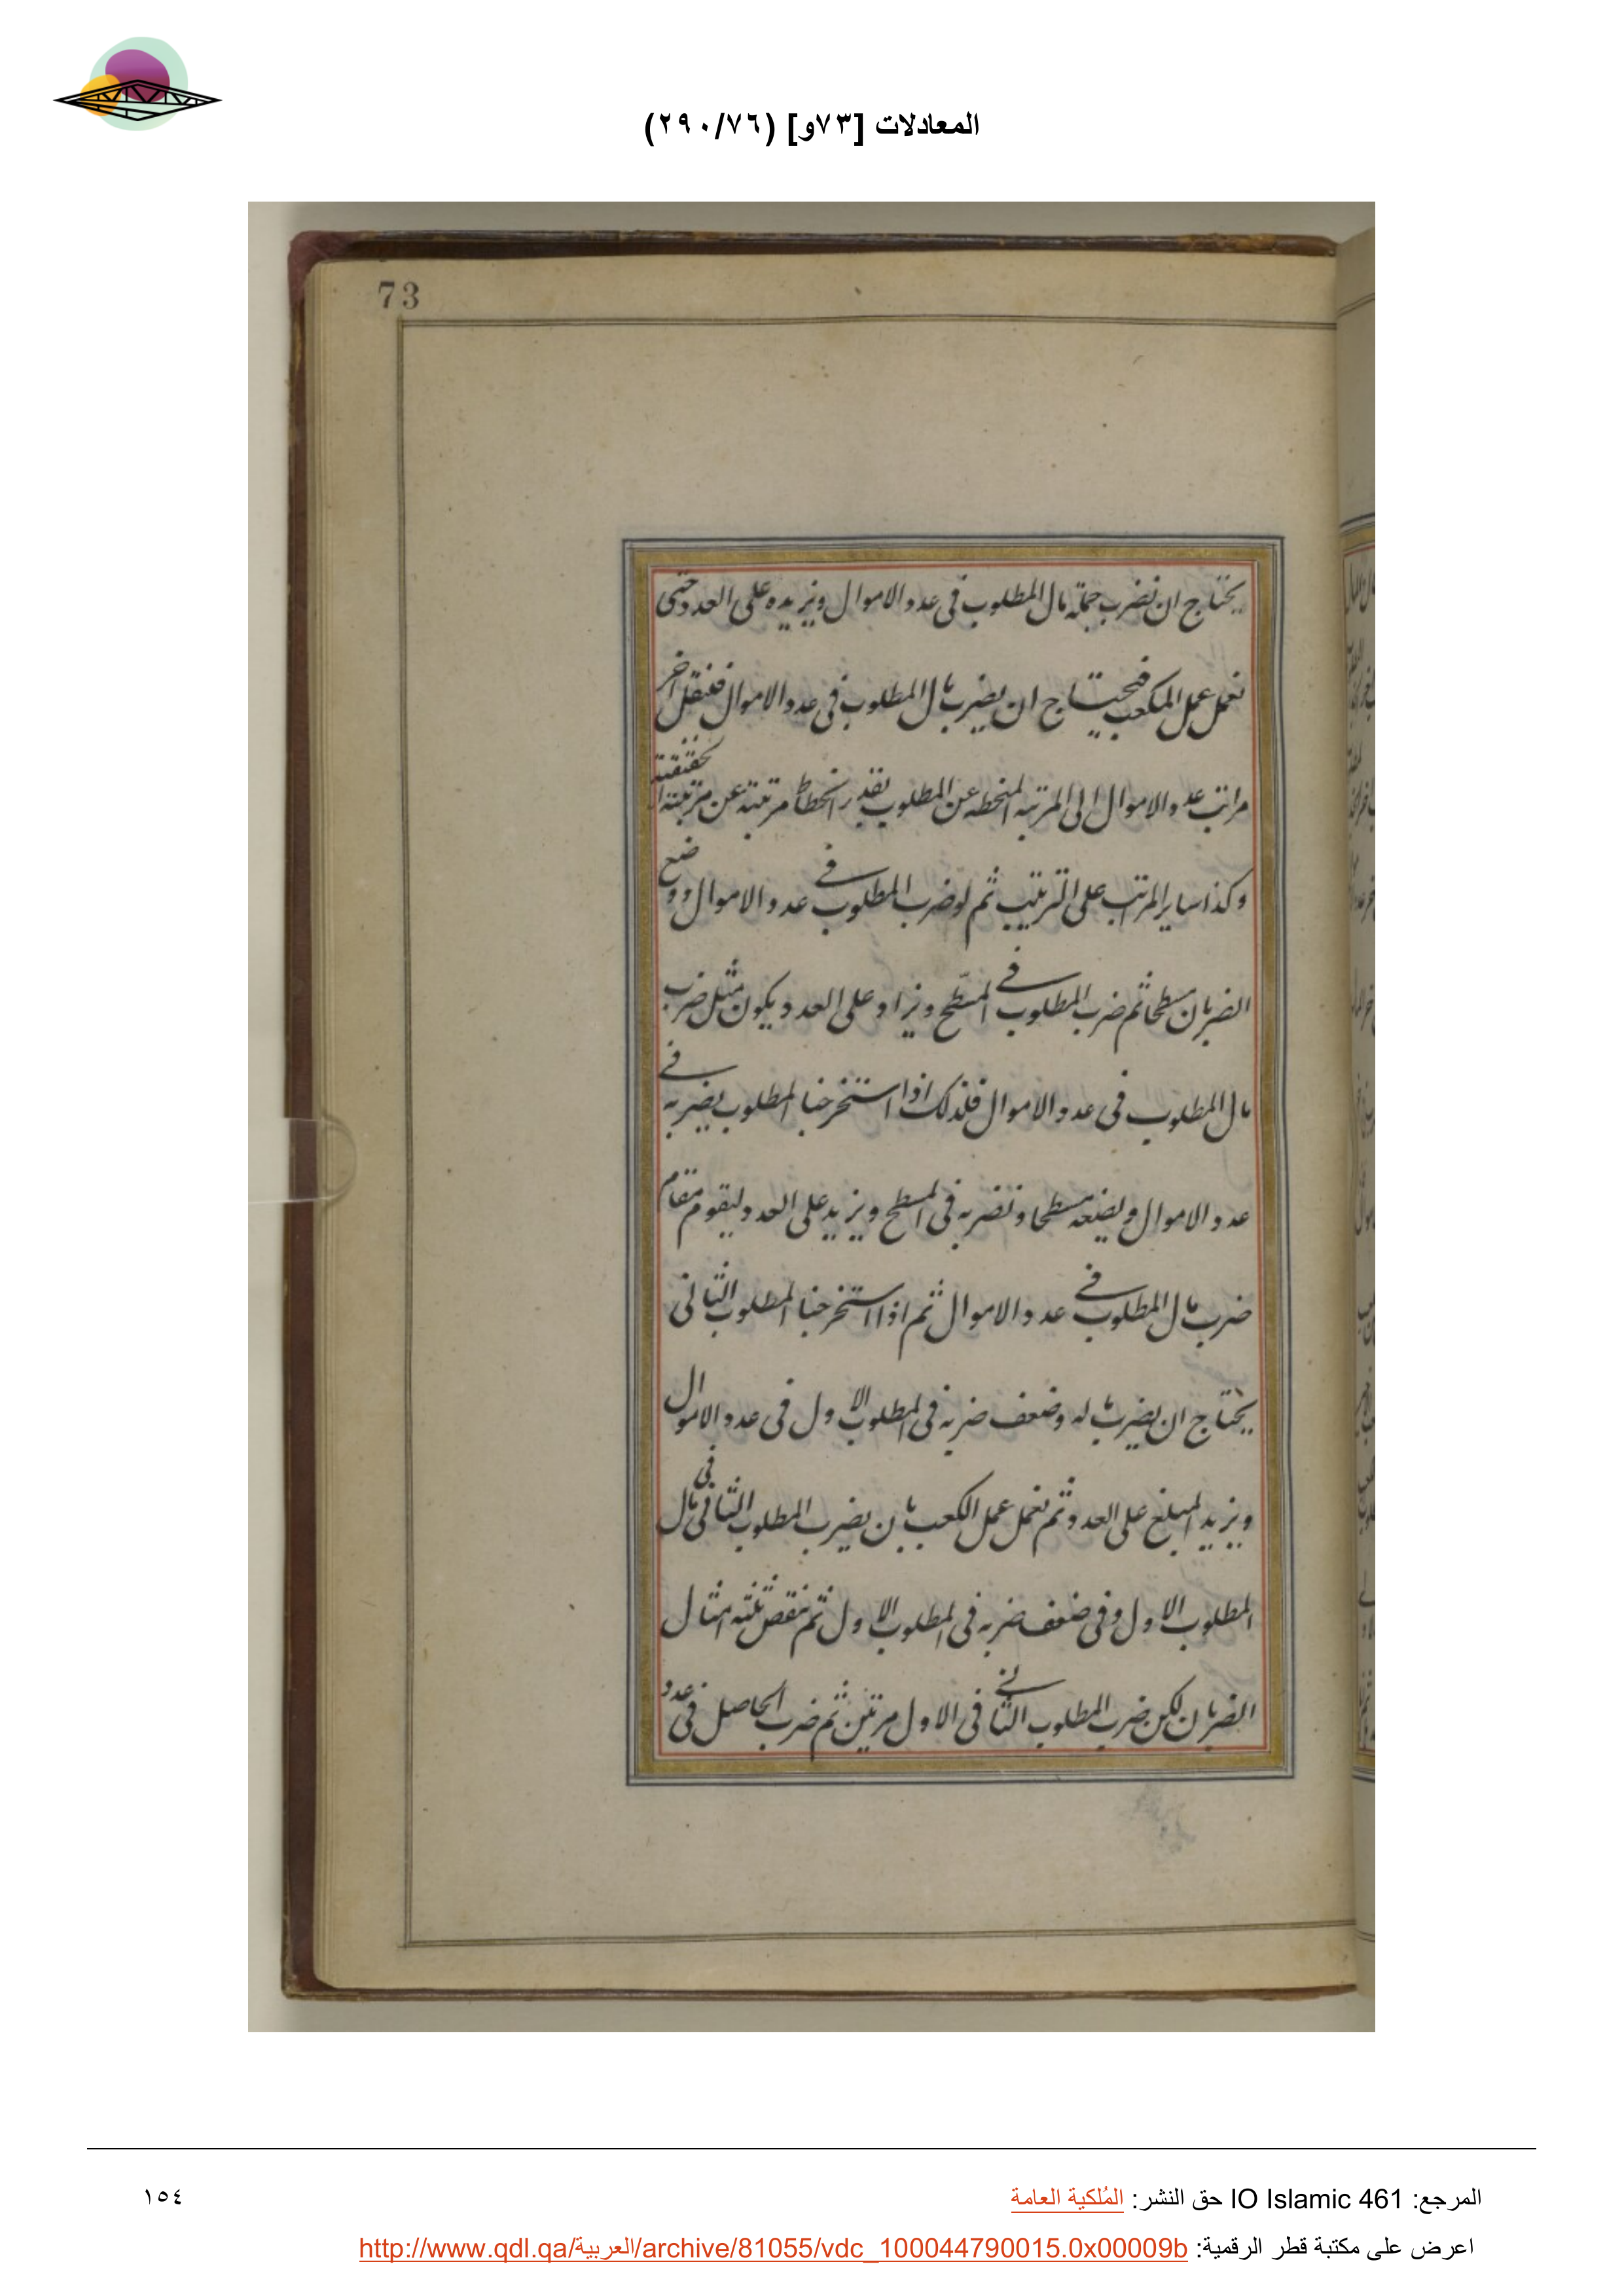 المعادلات [٧٣و] (٢٩٠/٧٦)
73
يحتاج ان نضرب جملة مال المطلوب فى عدد الاموال ونزيده على العدد حتى
نعمل عمل المكعب فيحتاج ان يضرب مال المطلوب فى عدد الاموال فننقل اخر
مراتب عدد الاموال الى المرتبه المنحطه عن المطلوب بقدر انحطاط مرتبته عن مرتبته الحقيقية
وكذا ساير المراتب على الترتيب ثم لو ضرب المطلوب فى عدد الاموال ووضع
الضربان مسطحا ثم ضرب المطلوب فى المسطّح ونزاد على العدد يكون مثل ضرب
مال المطلوب فى عدد الاموال فلذلك اذا استخرجنا المطلوب يضربه فى
عدد الاموال ويضعه مسطحا ونضربه فى المسطح ويزيد على العدد ليقوم مقام
ضرب مال المطلوب فى عدد الاموال ثم اذا استخرجنا المطلوب الثانى
يحتاج ان يضرب ماله وضعف ضربه فى المطلوب الاول فى عدد الاموال
ويزيد المبلغ على العدد ثم نعمل عمل الكعب بان يضرب المطلوب الثانى فى مال
المطلوب الاول وفى ضعف ضربه فى المطلوب الاول ثم ننقص ثلثة امثال
الضربان لكن ضرب المطلوب الثانى فى الاول مرتين ثم ضرب الحاصل فى عدد
المرجع: IO Islamic 461 حق النشر: المُلكية العامة
١٥٤
اعرض على مكتبة قطر الرقمية: http://www.qdl.qa/العربية/archive/81055/vdc_100044790015.0x00009b